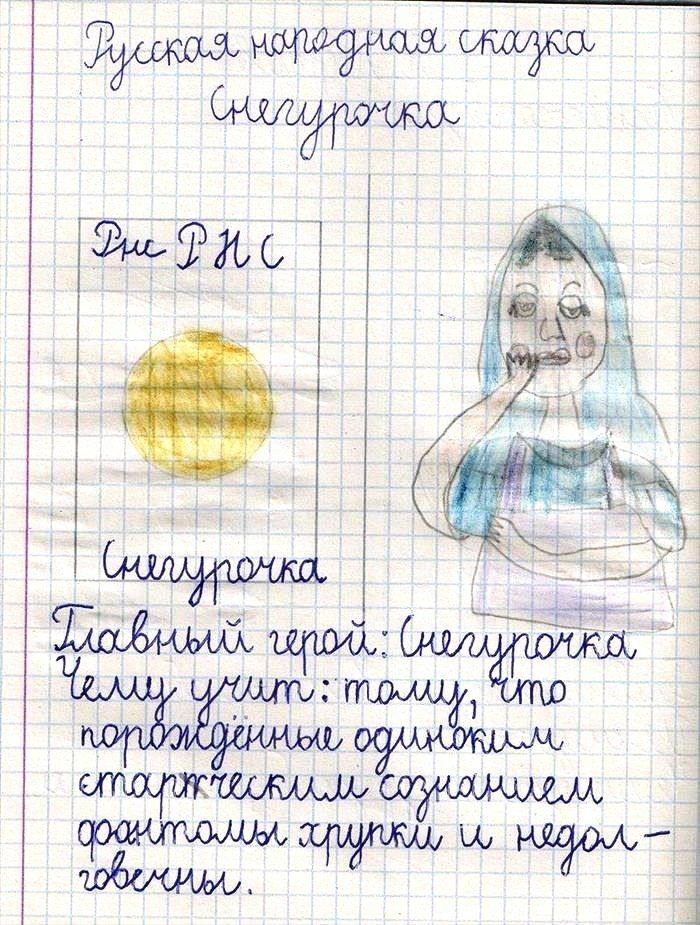 Русская народная сказка
Снегурочка
Рнс Р Н С
Снегурочка
Главный герой: Снегурочка
Чему учит: тому, что
порождённые одиноким
старческим сознанием
фантомы хрупки и недол-
говечны.